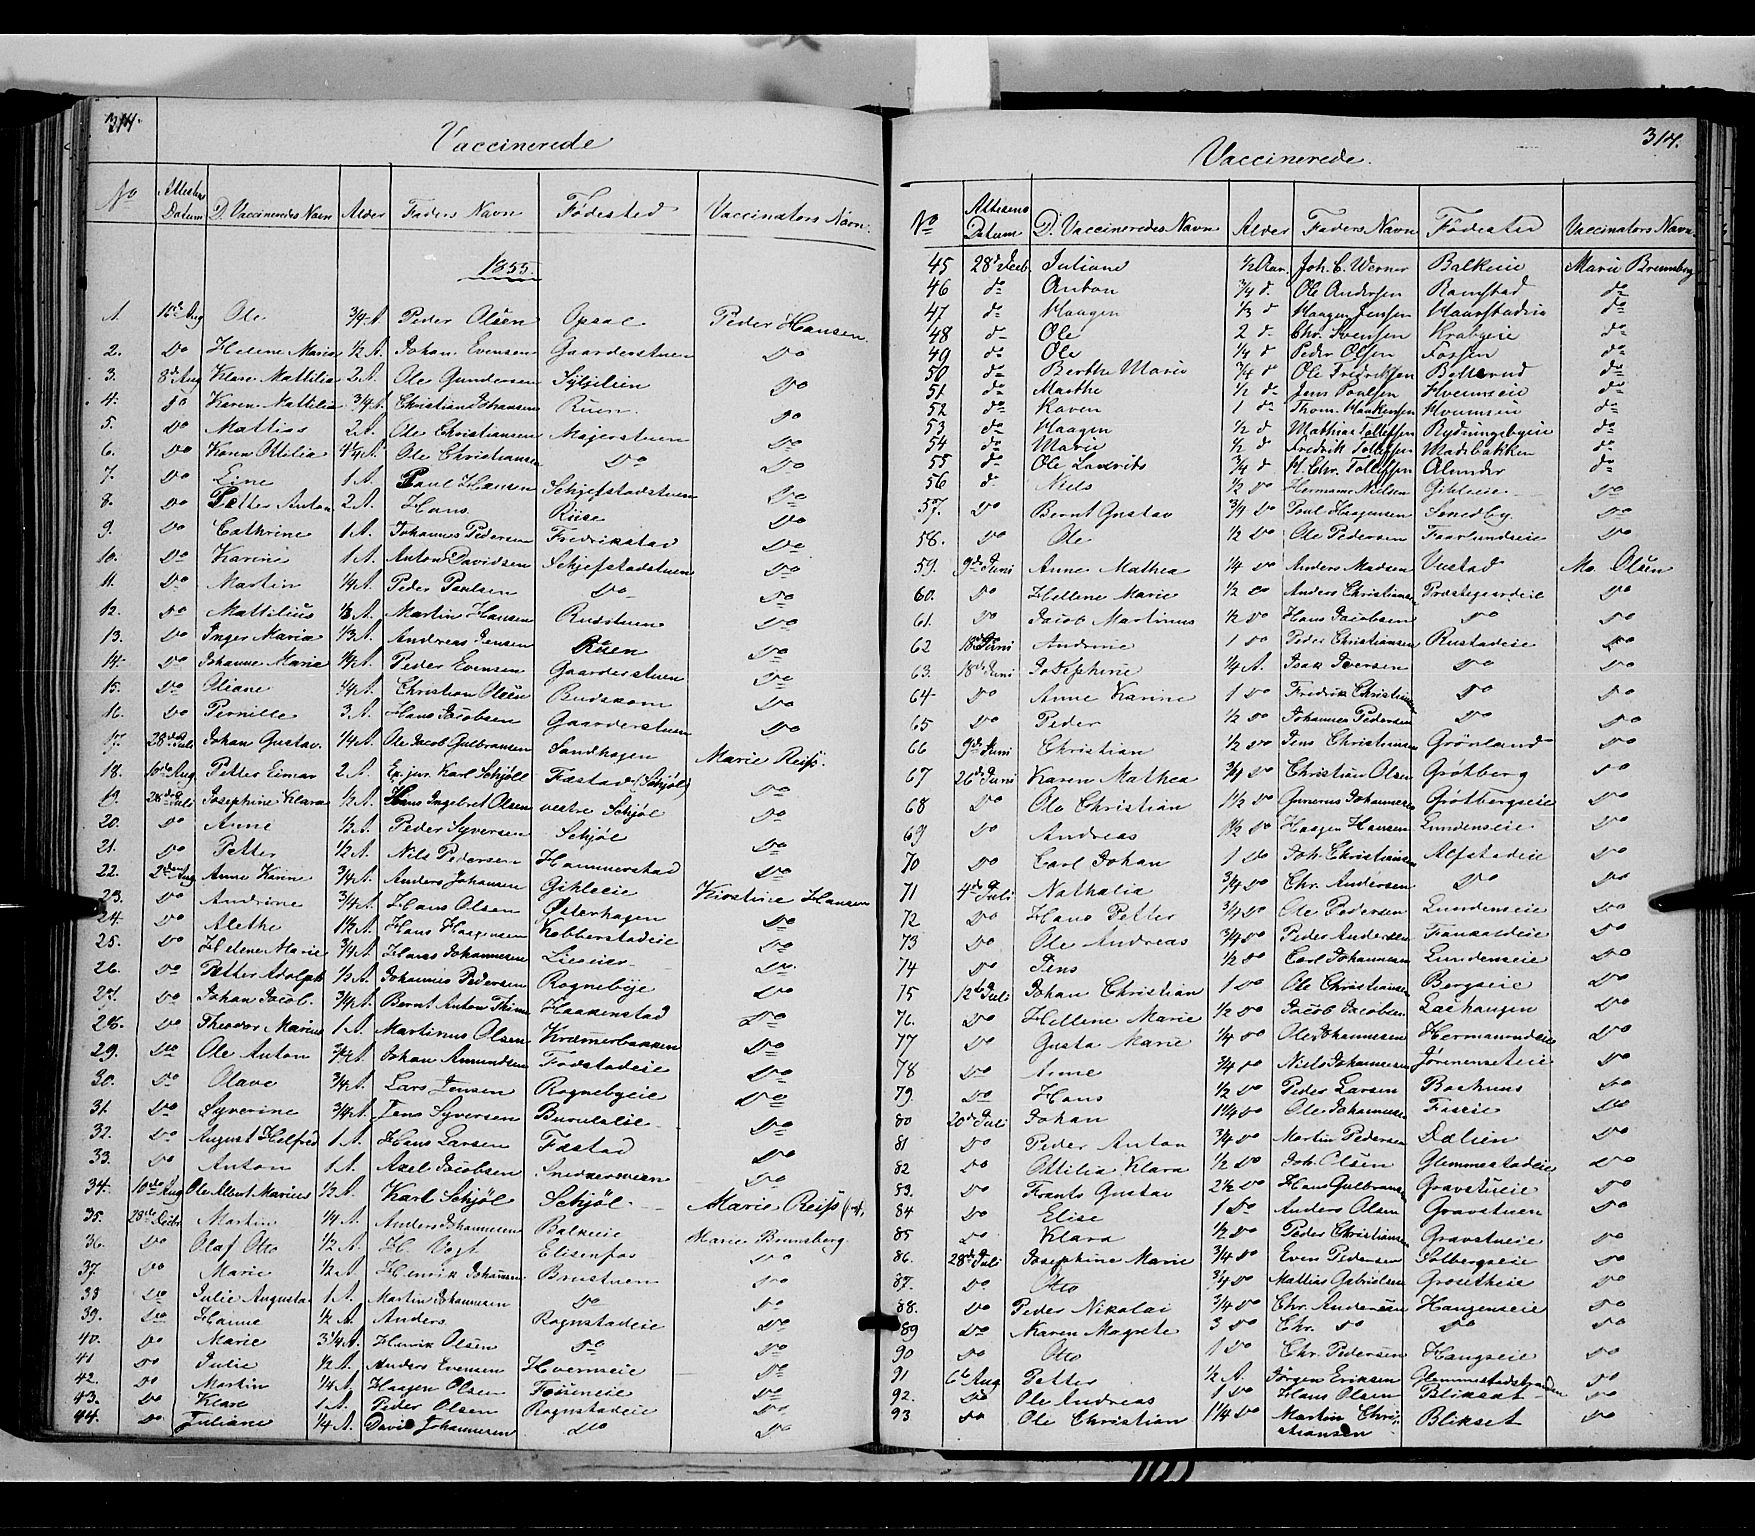 314.
Vaccinerede
No Attestens Datum D. Vaccineredes Navn Alder Faders Navn Fødested Vaccinators Navn.
1855.
1. Ole 3/4 A Peder Olsen Opsal Peder Hansen
2. Do Helene Maria 1/2 A. Johan Evensen Gaarderstuen Do
3. 8de Aug Klare Mathilia 2 A. Ole Gundersen Do
4. do Karen Mathilia 3/4 A Christian Johansen Ruen Do
5. Do Mattias 2 A. Ole Christiansen Majerstuen Do
6. Do Karen Ottilia Ole Christiansen Do Do
7. Do Line 1 A Paul Hansen Schjefstadstuen Do
8. Do Petter Anton 2 A. Hans Riise Do
9. Do Cathrine 1 A. Johannes Pedersen Fredrikstad Do
10. Do Karine 1 A. Anton Davidsen Schjefstadstuen Do
11. Do Martin 1/4 A Peder Paulsen Do Do
12. Do Mattilius Martin Hansen Rudstuen Do
13. Do Inger Maria 1/3 A. Andreas Jensen Ruen Do
14. Do Johanne Marie Peder Evensen Gaarderstuen Do
15. Do Oliane 1/4 A. Christian Olsen Budskom Do
16. Do Pernille 3 A. Hans Jacobsen Gaarderstuen Do
17. 28de Juli Johan Gustav. 1/4 A. Ole Jacob Gulbransen Sandhagen Marie Reiss.
18. 10de Aug Petter Eimar 2 A. Ex. jur. Karl Schjöll Fæstad (Schjöl) Do
19. 28de Juli Josephine Klara 1/2 A Hans Ingebret Olsen vestre Schjöl Do
20. Do Anne 1/2 A. Peder Syversen Schjöl Do
21. Do Petter 1/2 A. Nils Pedersen Hammerstad Do
22. 2den Aug Anne Karine 3/4 A. Anders Johansen Gihleeie Kirstine Hansen
23. Do Andrine 3/4 A. Hans Olsen Østerhagen Do
24. Do Alethe 1 1/2 A. Hans Haagensen Kobberstadeie Do
25. Do Helene Marie 3/4 A Hans Johannesen Lieeier Do.
26. Do Petter Adolph 1/2 A. Johannes Pedersen Rognebyeie Do
27. Do Johan Jacob. 3/4 A. Bernt Anton Haakenstad Do
28. Do Theodor Marius 1 A. Martinus Olsen Kræmerbakken Do
29. Do Ole Anton 3/4 A. Johan Amundsen Fodstadeie Do
30. Do Olave 3/4 A. Lars Jensen Rognebyeie Do
31. Do Syverine 3/4 A. Jens Syversen Do
32. Do August Helfred 1 A. Hans Larsen Fæstad Do
33. Do Anton 1 A. Axel Jacobsen Do
34. 10de Aug Ole Albert Marius 1/2 A. Karl Schjöl Schjöl. Marie Reiss
35. Martin 1/4 A. Anders Johannesen Balkeeie Marie Brunsberg.
36. Do Olaf Otto 1/2 A. H. Vogt Elisenfos Do
37. Do Marie 1/2 A Henrik Johansen Brustuen Do
38 Do Julie Augusta 1 A. Martin Johannesen Do Do
39. Do Hanne 1/2 A Anders Rognstadeie Do
40. Do Marie 3 1/4 A. Henrik Olsen Do Do
41 Do Julie 1/2 A. Anders Evensen Hvermeie Do
42. Do Martin 1/4 A. Haagen Olsen Do
43. Do Klare 1 A. Peder Olsen Rognstadeie Do
44. Do Juliane 1/4 A. David Johannesen do Do
314.
Vaccinerede.
No Attestens Datum D. Vaccineredes Navn Alder Faders Navn Fødested Vaccinators Navn
45 Juliane 1/2 Aar. Joh. C. Werner Balkeeie Marie Brunsberg
46 do Anton 3/4 d. Ole Andersen Ramstad do
47 do Haagen 1/3 d Haagen Jensen Haarstadeie do
48 do Ole 2 d Chr. Svensen Krabyeie do
49 do Ole 1/4 d Peder Olsen Fossen do
50 do Berthe Marie 3/4 d Ole Fredriksen do
51 do Marthe 1/2 d Jens Poulsen Hveemseie do
52 do Karen 1 do Thom. Haakensen Hveemseie do
53 do Haagen 1/2 d Mathias Tollefsen do
54 do Marie 1/2 d Fredrik Tollefsen Madsbakken do
55 do Ole Lauritz 3/4 d H. Chr. Tollefsen Alunder do
56 do Niels 1/2 Do Herman Nielsen Gihleeie Do
57. Do Bernt Gustav 3/4 Do Poul Haagensen Smedby Do
58. Do Ole 1/2 Do Ole Pedersen Faarlundseie Do
59. 9de Juni Anne Mathea 1/4 Do Anders Madsen Vestad M. Olsen
60. Do Hellene Marie 1/2 Do Anders Christiansen Præstegaardeie Do
61. Do Jacob Martinus 1/2 Do Hans Jacobsen Do Do
62 18de Juni Andrine 1 Do Peder Christiansen Rustadeie Do
63. 18de Juni Josephine 1/4 A. Isak Iversen Do Do
64 Do Anne Karine 1 Do Fredrik Christiansen Do Do
65 Do Peder 1/2 Do Johannes Pedersen Do Do
66 9de Juni Christian 1/2 Do Jens Christiansen Grönland Do
67 26de Juni Karen Mathea 3/4 Do Christian Olsen Grötberg Do
68 Do Ole Christian 1 1/2 Do Gunerus Johannesen Grötbergseie Do
69 Do Andreas 1 1/2 Do Haagen Hansen Lundenseie Do
70 Do Carl Johan 1 Do Joh. Christiansen Alfstadeie Do
71 4de Juli Nathalia 3/4 Do Chr. Andersen Do Do
72 Do Hans Petter 3/4 Do Ole Pedersen Lundenseie Do
73 Do Ole Andreas 3/4 Do Peder Andersen Do
74 Do Jens 1/2 Do Carl Johannesen Lundenseie Do
75 12te Juli Johan Christian 1 Do Ole Christiansen Bergseie Do
76. Do Hellene Marie 1/2 Do Jacob Jacobsen Do
77 Do Gusta Marie 1/4 Do Ole Johannesen Hermanrudeie Do
78 Do Anne 3/4 Do Niels Johannesen Do
79. Do Hans 1/2 Do Peder Larsen Boshuus Do
80 20de Juli Johan 1 1/4 Do Ole Johannesen Do
81 Do Peder Anton 3/4 Do Martin Pedersen Dælien Do
82 Do Ottilia Klara 1/2 Do Joh. Olsen Glemmestadeie Do
83. Do Frants Gustav 2 1/2 Do Hans Gulbransen Gravstueie Do
84 Do Elise 1 Do Anders Olsen Gravstuen Do
85 Do Klara 1/2 Do Peder Christiansen Gravstueie Do
86. 28de Juli Josephine Marie 3/4 Do Even Pedersen Solbergseie Do
87. Do Otto 3/4 Do Mattias Gabrielsen Grosetheie Do
88. Do Peder Nikolai 3/4 Do Chr. Andersen Haugenseie Do
89 Do Karen Magrete 3 Do Chr. Do Do Do
90 Do Otto 1 Do Chr. Pedersen Haugseie Do
91 6te Aug Petter 1/2 A. Jörgen Eriksen Do
92. Do Ole Andreas 1 Do Hans Olsen Blikset Do
93 Do Ole Christian 1 1/4 Do Martin Christiansen Blikset Do